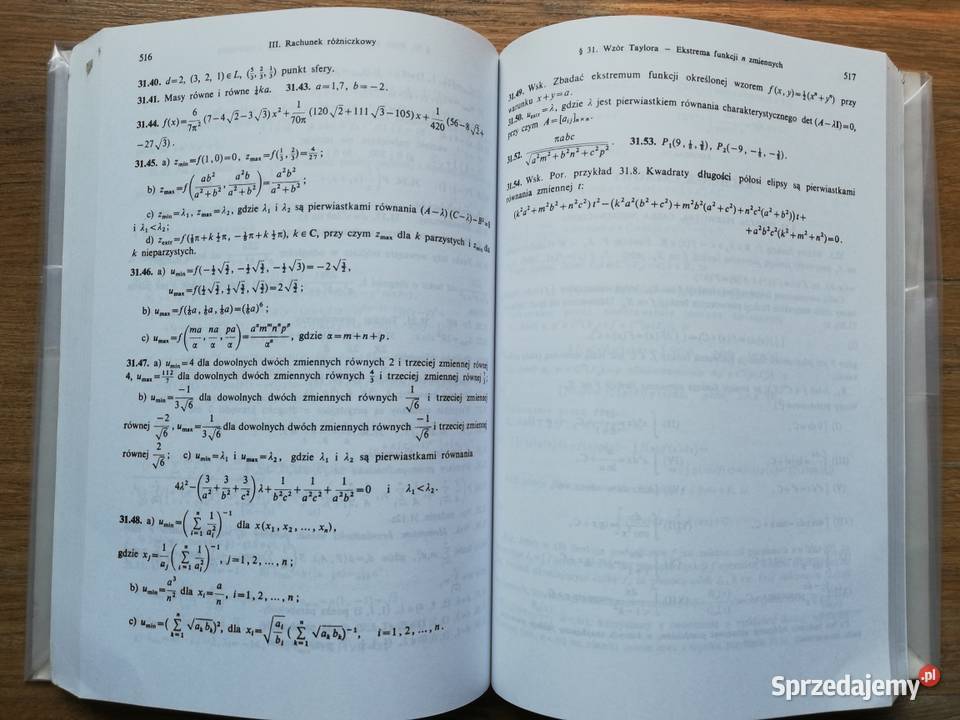 516
III. Rachunek różniczkowy
31.40. d=2, (3, 2, 1)∈L, (5/3, 2/3, 1/3) punkt sfery.
31.41. Masy równe i równe ka. 31.43. a=1,7, b=−2.
31.44. f(x)=6/7π²(7−4√2−3√3)x²+1/70π(120√2+111√3−105)x+1/420(56−8√2+
−27√3).
31.45. a) z_min=f(1,0)=0, z_max=f(1/3, 2/3)=4/27;
b) z_max=f(ab²/(a²+b²), a²b/(a²+b²))=a²b²/(a²+b²);
c) z_min=λ₁, z_max=λ₂, gdzie λ₁ i λ₂ są pierwiastkami równania (A−λ)(C−λ)−B²=0
i λ₁<λ₂;
d) z_extr=f(⅛π+k½π, −⅛π+k½π), k∈C, przy czym z_max dla k parzystych i z_min dla
k nieparzystych.
31.46. a) u_min=
u_max=
b) u_max=f(⅙a, ⅙a, ⅙a)=(⅙a)⁶;
c) u_max=f(ma/α, na/α, pa/α)=aᵅmᵐnⁿpᵖ/αᵅ, gdzie α=m+n+p.
31.47. a) u_min=4 dla dowolnych dwóch zmiennych równych 2 i trzeciej zmiennej równej
4, u_max= dla dowolnych dwóch zmiennych równych 4/3 i trzeciej zmiennej równej
b) u_min=−1/3√6 dla dowolnych dwóch zmiennych równych 1/√6 i trzeciej zmiennej
równej −2/√6, u_max=1/3√6 dla dowolnych dwóch zmiennych równych −1/√6 i trzeciej zmiennej
równej 2/√6; c) u_min=λ₁ i u_max=λ₂, gdzie λ₁ i λ₂ są pierwiastkami równania
4λ²−(3/a²+3/b²+3/c²)λ+1/b²c²+1/a²c²+1/a²b²=0 i λ₁<λ₂.
31.48. a) u_min=(∑ⁿᵢ₌₁ 1/aᵢ²)⁻¹ dla x(x₁, x₂, ..., xₙ),
gdzie xⱼ=1/aⱼ(∑ⁿᵢ₌₁ 1/aᵢ²)⁻¹, j=1, 2, ..., n;
b) u_min=a³/n² dla xᵢ=a/n, i=1, 2, ..., n;
c) u_min=(∑ⁿₖ₌₁ √(aₖbₖ))², dla xᵢ=√(aᵢ/bᵢ)(∑ⁿₖ₌₁ √(aₖbₖ))⁻¹, i=1, 2, ..., n.
§ 31. Wzór Taylora − Ekstrema funkcji n zmiennych
517
31.49. Wsk. Zbadać ekstremum funkcji określonej wzorem f(x, y)=½(xⁿ+yⁿ) przy
warunku x+y=a.
31.50. u_extr=λ, gdzie λ jest pierwiastkiem równania charakterystycznego det(A−λI)=0,
przy czym A=[aᵢⱼ]ₙₓₙ.
31.52. πabc/√(a²m²+b²n²+c²p²). 31.53. P₁(9, ⅛, ⅜), P₂(−9, −⅛, −⅜).
31.54. Wsk. Por. przykład 31.8. Kwadraty długości półosi elipsy są pierwiastkami
równania zmiennej t:
(k²a²+m²b²+n²c²)t²−(k²a²(b²+c²)+m²b²(a²+c²)+n²c²(a²+b²))t+
+a²b²c²(k²+m²+n²)=0.
Sprzedajemy.pl